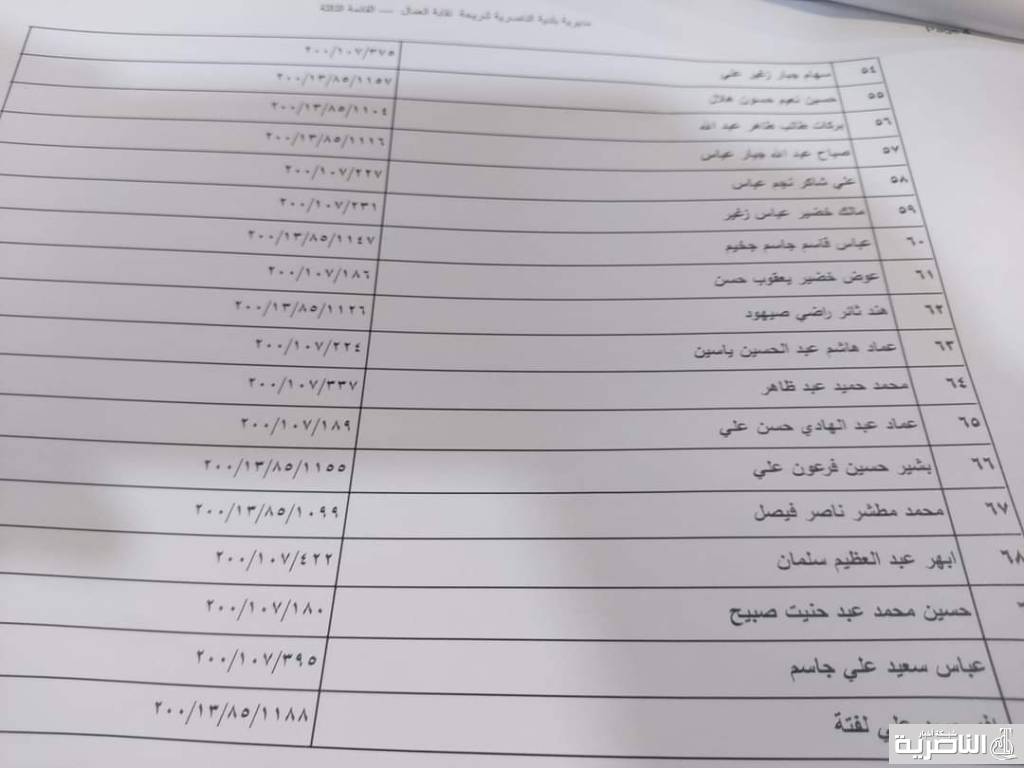 مديرية بلدية الناصرية شريحة نقابة العمال — القائمة الثالثة
٥٤ سهام جبار زغير علي ٢٠٠/١٠٧/٣٧٥
٥٥ حسين نعيم حسون هلال ٢٠٠/١٣/٨٥/١١٥٧
٥٦ بركات طالب طاهر عبد الله ٢٠٠/١٣/٨٥/١١٠٤
٥٧ صباح عبد الله جبار عباس ٢٠٠/١٣/٨٥/١١١٦
٥٨ علي شاكر نجم عباس ٢٠٠/١٠٧/٢٢٧
٥٩ مالك خضير عباس زغير ٢٠٠/١٠٧/٢٣١
٦٠ عباس قاسم جاسم جخيم ٢٠٠/١٣/٨٥/١١٤٧
٦١ عوض خضير يعقوب حسن ٢٠٠/١٠٧/١٨٦
٦٢ هند ثائر راضي صيهود ٢٠٠/١٣/٨٥/١١٢٦
٦٣ عماد هاشم عبد الحسين ياسين ٢٠٠/١٠٧/٢٢٤
٦٤ محمد حميد عبد ظاهر ٢٠٠/١٠٧/٣٣٧
٦٥ عماد عبد الهادي حسن علي ٢٠٠/١٠٧/١٨٩
٦٦ بشير حسين فرعون علي ٢٠٠/١٣/٨٥/١١٥٥
٦٧ محمد مطشر ناصر فيصل ٢٠٠/١٣/٨٥/١٠٩٩
٦٨ ابهر عبد العظيم سلمان ٢٠٠/١٠٧/٤٢٢
حسين محمد عبد حنيت صبيح ٢٠٠/١٠٧/١٨٠
عباس سعيد علي جاسم ٢٠٠/١٠٧/٣٩٥
علي لفتة ٢٠٠/١٣/٨٥/١١٨٨
شبكة أخبار
الناصرية